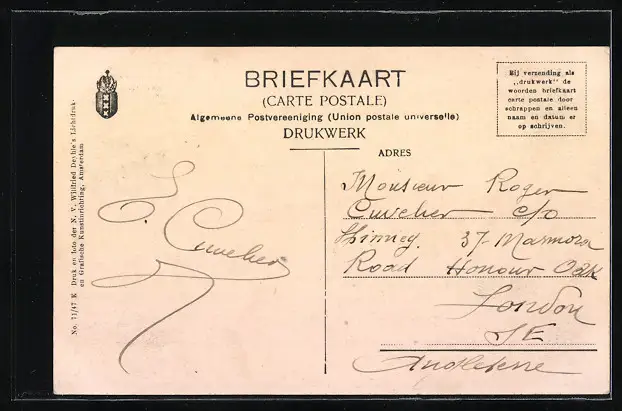 BRIEFKAART
(CARTE POSTALE)
Algemeene Postvereeniging (Union postale universelle)
DRUKWERK
Bij verzending als
„drukwerk" de
woorden briefkaart
carte postale door
schrappen en alleen
naam en datum er
op schrijven.
No. 71/47 K Druk en foto der N. V. Willfried Deyhle's Lichtdruk-
en Grafische Kunstinrichting, Amsterdam
Cuvelier
ADRES
Monsieur Roger
Cuvelier c/o
37 Marmora
Road Honour Oak
London
SE
Angleterre